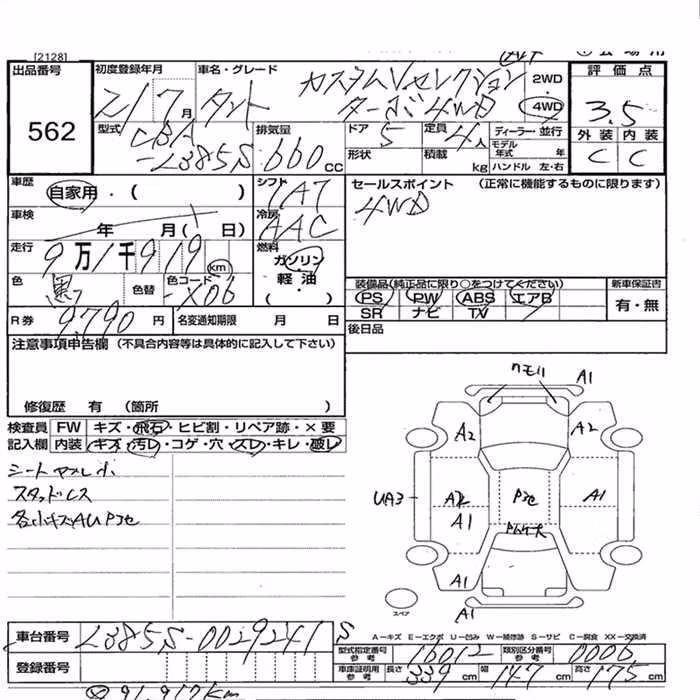 [2128]
出品番号 初度登録年月 車名・グレード カスタムVセレクション 2WD 評価点
562 21/7月 タント ターボ4WD 4WD 3.5
型式 CBA 排気量 ドア 5 定員 4人 ディーラー・並行 外装 内装
-L385S 660cc 形状 積載 kg モデル年式 年 C C
ハンドル 左・右
車歴 自家用・( ) シフト IAT セールスポイント (正常に機能するものに限ります)
車検 年 月( 日) 冷房 AAC 4WD
走行 9万1千919km 燃料 ガソリン・軽油・( )
色 黒 色替 色コード -X06 装備品(純正品に限り○をつけてください) 新車保証書
PS PW ABS エアB 有・無
R券 9,790円 名変通知期限 月 日 SR ナビ TV
注意事項申告欄 (不具合内容等は具体的に記入して下さい) 後日品
修復歴 有 (箇所 )
検査員 FW キズ・飛石・ヒビ割・リペア跡・×要
記入欄 内装 キズ・汚レ・コゲ・穴・スレ・キレ・破レ
スタッドレス
クモリ A1
A2 A2
UA3 A2 A1
A1
A1
A1
スペア
A-キズ E-エクボ U-凹み W-補修跡 S-サビ C-腐食 XX-交換済
車台番号 L385S-0029241 S 型式指定番号 参考 16012 類別区分番号 参考 0006
登録番号 車庫証明用 参考 長さ 339cm 幅 147cm 高さ 175cm
91,919km